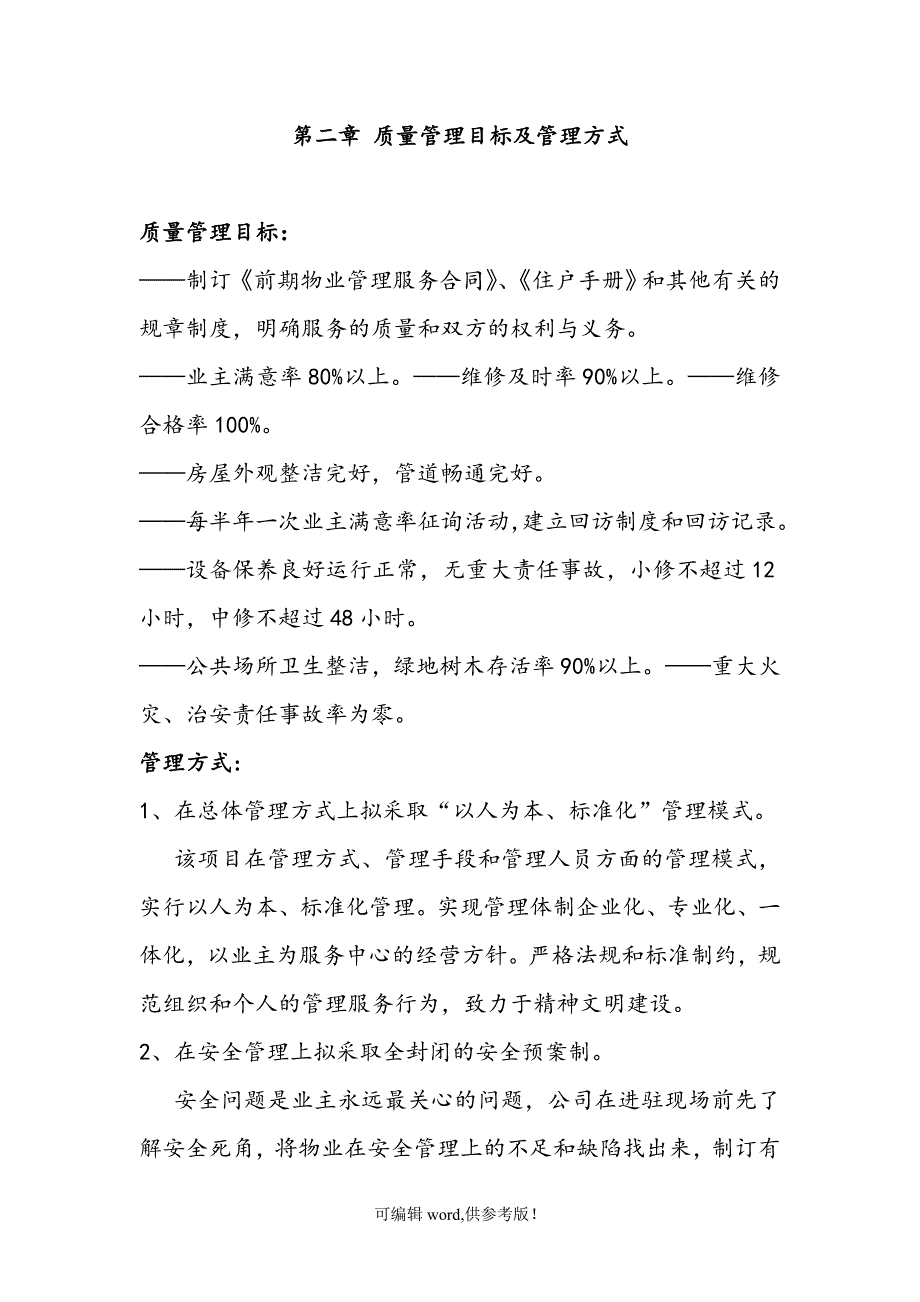 第二章 质量管理目标及管理方式
质量管理目标:
——制订《前期物业管理服务合同》、《住户手册》和其他有关的
规章制度，明确服务的质量和双方的权利与义务。
——业主满意率80%以上。——维修及时率90%以上。——维修
合格率100%。
——房屋外观整洁完好，管道畅通完好。
——每半年一次业主满意率征询活动,建立回访制度和回访记录。
——设备保养良好运行正常，无重大责任事故，小修不超过12
小时，中修不超过48小时。
——公共场所卫生整洁，绿地树木存活率90%以上。——重大火
灾、治安责任事故率为零。
管理方式:
1、在总体管理方式上拟采取“以人为本、标准化”管理模式。
该项目在管理方式、管理手段和管理人员方面的管理模式，
实行以人为本、标准化管理。实现管理体制企业化、专业化、一
体化，以业主为服务中心的经营方针。严格法规和标准制约，规
范组织和个人的管理服务行为，致力于精神文明建设。
2、在安全管理上拟采取全封闭的安全预案制。
安全问题是业主永远最关心的问题，公司在进驻现场前先了
解安全死角，将物业在安全管理上的不足和缺陷找出来，制订有
可编辑word,供参考版！